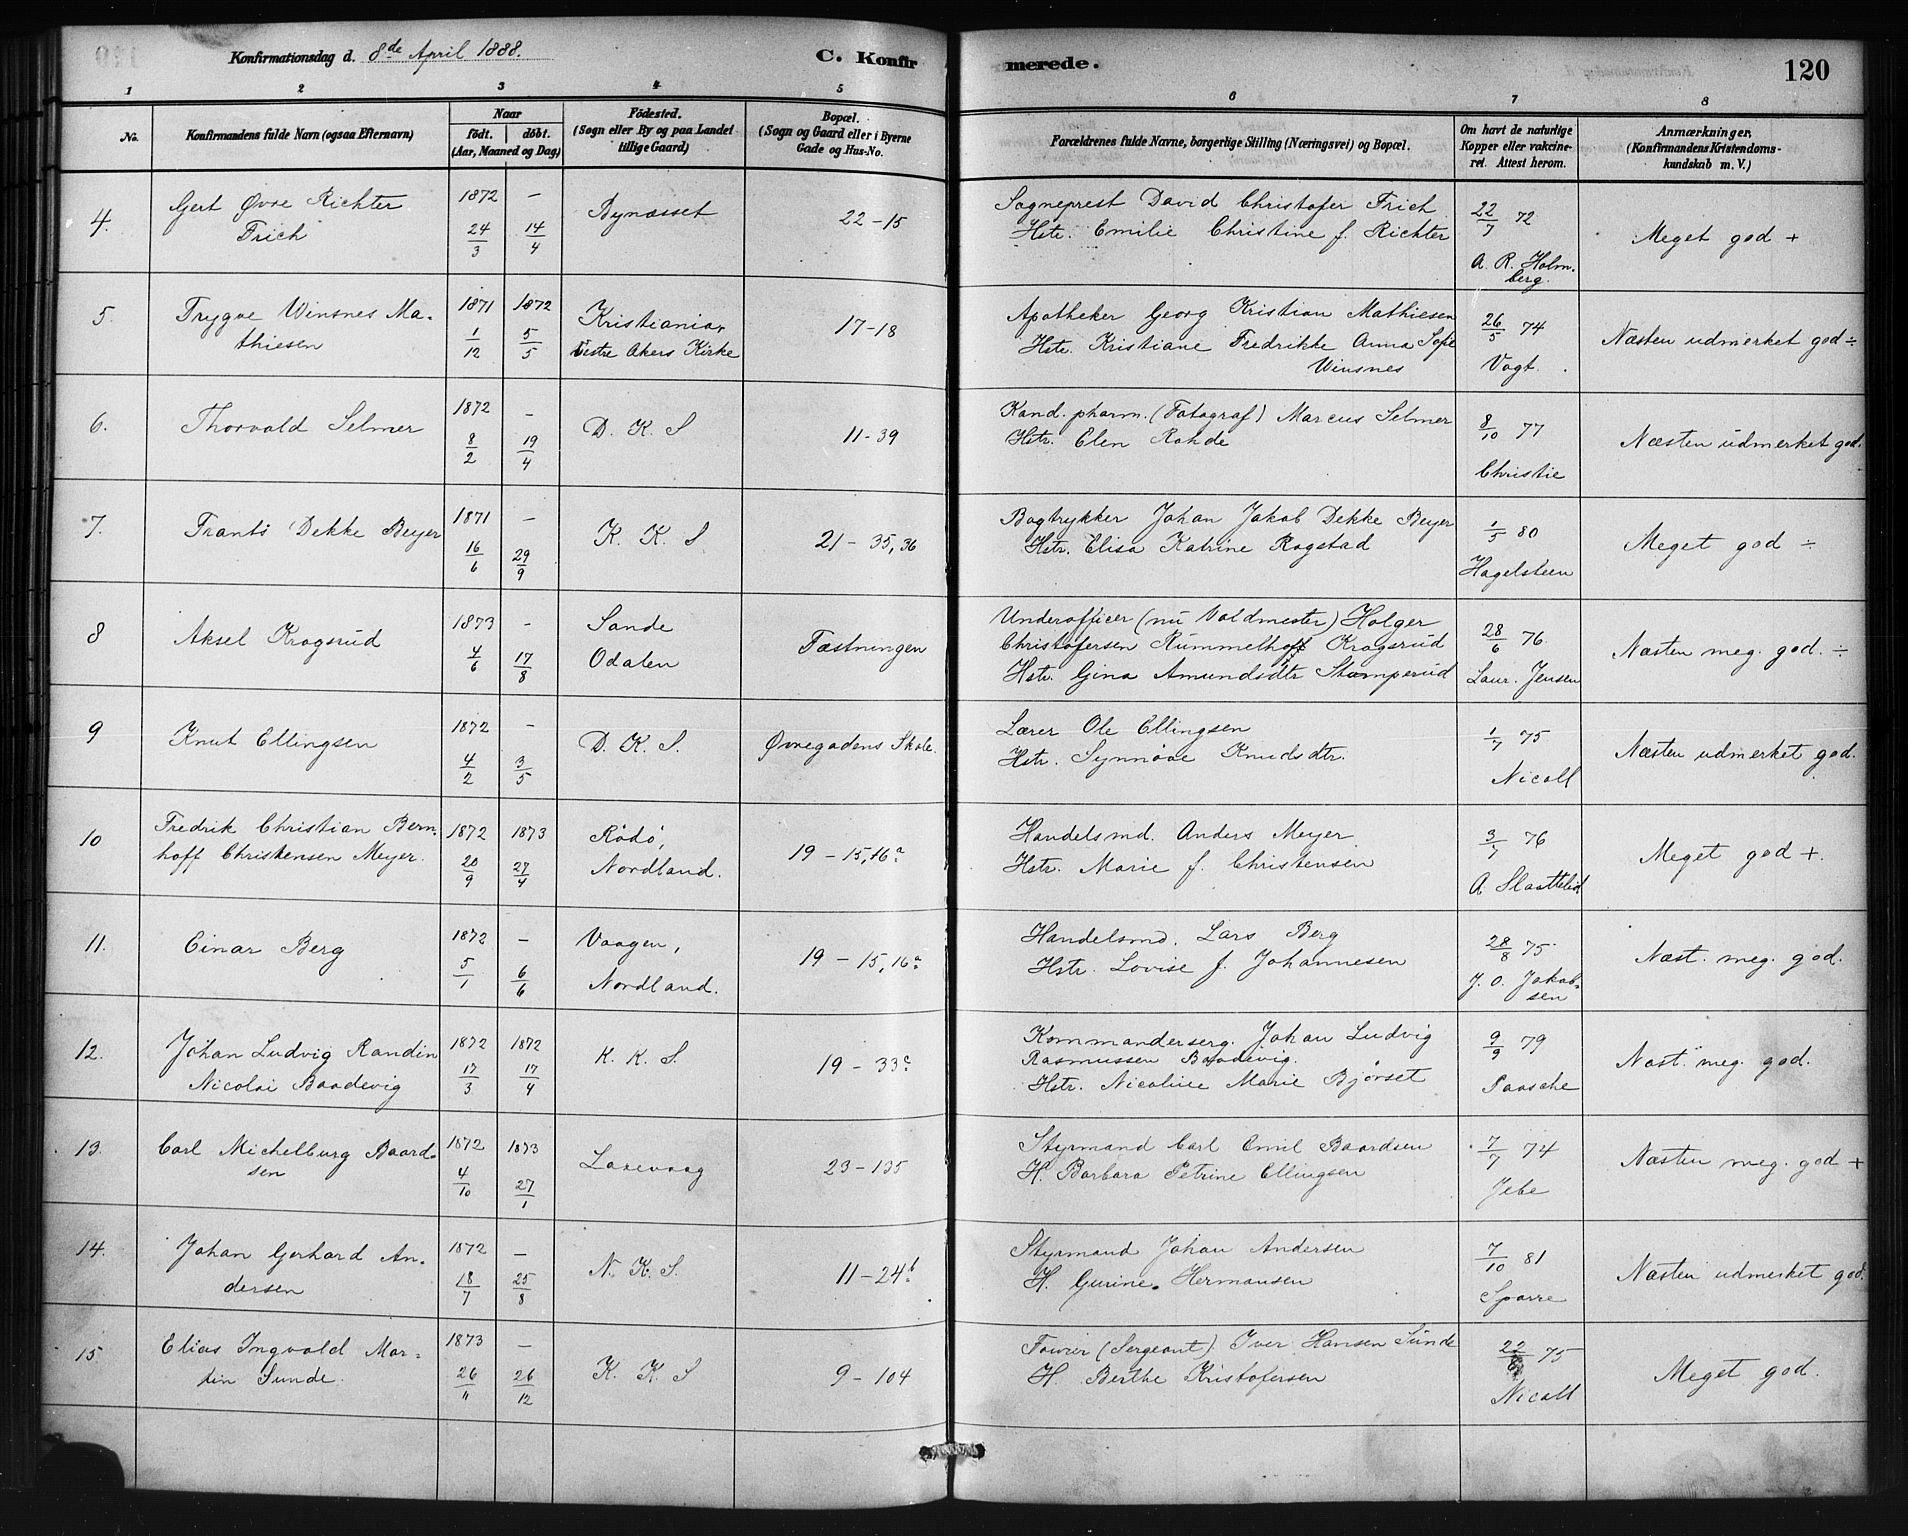 Konfirmationsdag d. 8de April 1888.
C. Konfirmerede.
120
1 2 3 4 5 6 7 8
No.
Konfirmandens fulde Navn (ogsaa Efternavn)
Naar
födt. döbt.
(Aar, Maaned og Dag)
Födested.
(Sogn eller By og paa Landet
tillige Gaard)
Bopæl.
(Sogn og Gaard eller i Byerne
Gade og Hus-No.
Forældrenes fulde Navne, borgerlige Stilling (Næringsvei) og Bopæl.
Om havt de naturlige
Kopper eller vakcine-
ret. Attest herom.
Anmærkninger,
(Konfirmandens Kristendoms-
kundskab m. V.)
4. Gert Øvre Richter
Frich
1872 —
24/3 14/4
Bynæsset
22-15
Sogneprest David Christofer Frich
Hstr. Emilie Christine f. Richter
22/7 72
A. R. Holm-
berg.
Meget god +
5. Trygve Winsnes Ma-
thiesen
1871 1872
1/12 5/5
Kristiania,
Vestre Akers Kirke
17-18
Apotheker Georg Kristian Mathiesen
Hstr. Kristiane Fredrikke Anna Sofie
Winsnes
26/5 74
Vogt.
Næsten udmerket god ÷
6. Thorvald Selmer
1872 —
8/2 19/4
D. K. S
11-39
Kand. pharm. (Fotograf) Marcus Selmer
Hstr. Elen Rohde
8/10 77
Christie
Næsten udmerket god.
7. Frants Dekke Beyer
1871 —
16/6 29/9
K. K. S
21 - 35, 36
Bogtrykker Johan Jakob Dekke Beyer
Hstr. Elisa Katrine Rogstad
1/5 80
Hagelsteen
Meget god ÷
8 Aksel Kragsrud
1873 -
4/6 17/8
Sande
Odalen
Fæstningen
Underofficer (nu Voldmester) Holger
Christofersen Rummelhoff Kragsrud
Hstr. Gina Amundsdtr Stamperud
28/6 76.
Laur. Jensen
Næsten meg. god. ÷
9 Knut Ellingsen
1872 —
4/2 3/5
D. K. S.
Øvregadens Skole.
Lærer Ole Ellingsen
Hstr. Synnøve Knudsdtr.
1/7 75
Nicoll
Næsten udmerket god.
10 Fredrik Christian Bern-
hoff Christensen Meyer.
1872 1873
20/9 27/4
Rödö,
Nordland.
19 - 15, 16a
Handelsmd. Anders Meyer
Hstr. Marie f. Christensen
3/7 76
A. Slaattelid
Meget god +.
11. Einar Berg
1872 —
5/1 6/6
Vaagen,
Nordland.
19 - 15, 16a
Handelsmd. Lars Berg
Hstr. Lovise f. Johannesen
28/8 75
J. O. Jakob-
sen
Næst. meg. god.
12. Johan Ludvig Randin
Nicolai Baadevig
1872 1872
17/3 17/4
K. K. S.
19 - 33c
Kommanderserg. Johan Ludvig
Rasmussen Baadevig.
Hstr. Nicoline Marie Bjørset
9/9 79
Paasche
Næst. meg. god.
13. Carl Michelburg Baard-
sen
1872 1873
4/10 27/1
Laxevaag
23-135
Styrmand Carl Emil Baardsen
H. Barbara Petrine Ellingsen
7/7 74
Jebe
Næsten meg. god +
14. Johan Gerhard An-
dersen
1872 —
18/7 25/8
N. K. S.
11-24b
Styrmand Johan Andersen
H. Gurine Hermansen
7/10 81
Sparre
Næsten udmerket god.
15 Elias Ingvald Mar-
tin Sunde.
1873 —
26/11 26/12
K. K. S
9 - 104
Fourer (Sergeant) Iver Hansen Sunde
H. Berthe Kristofersen
22/8 75
Nicoll
Meget god.